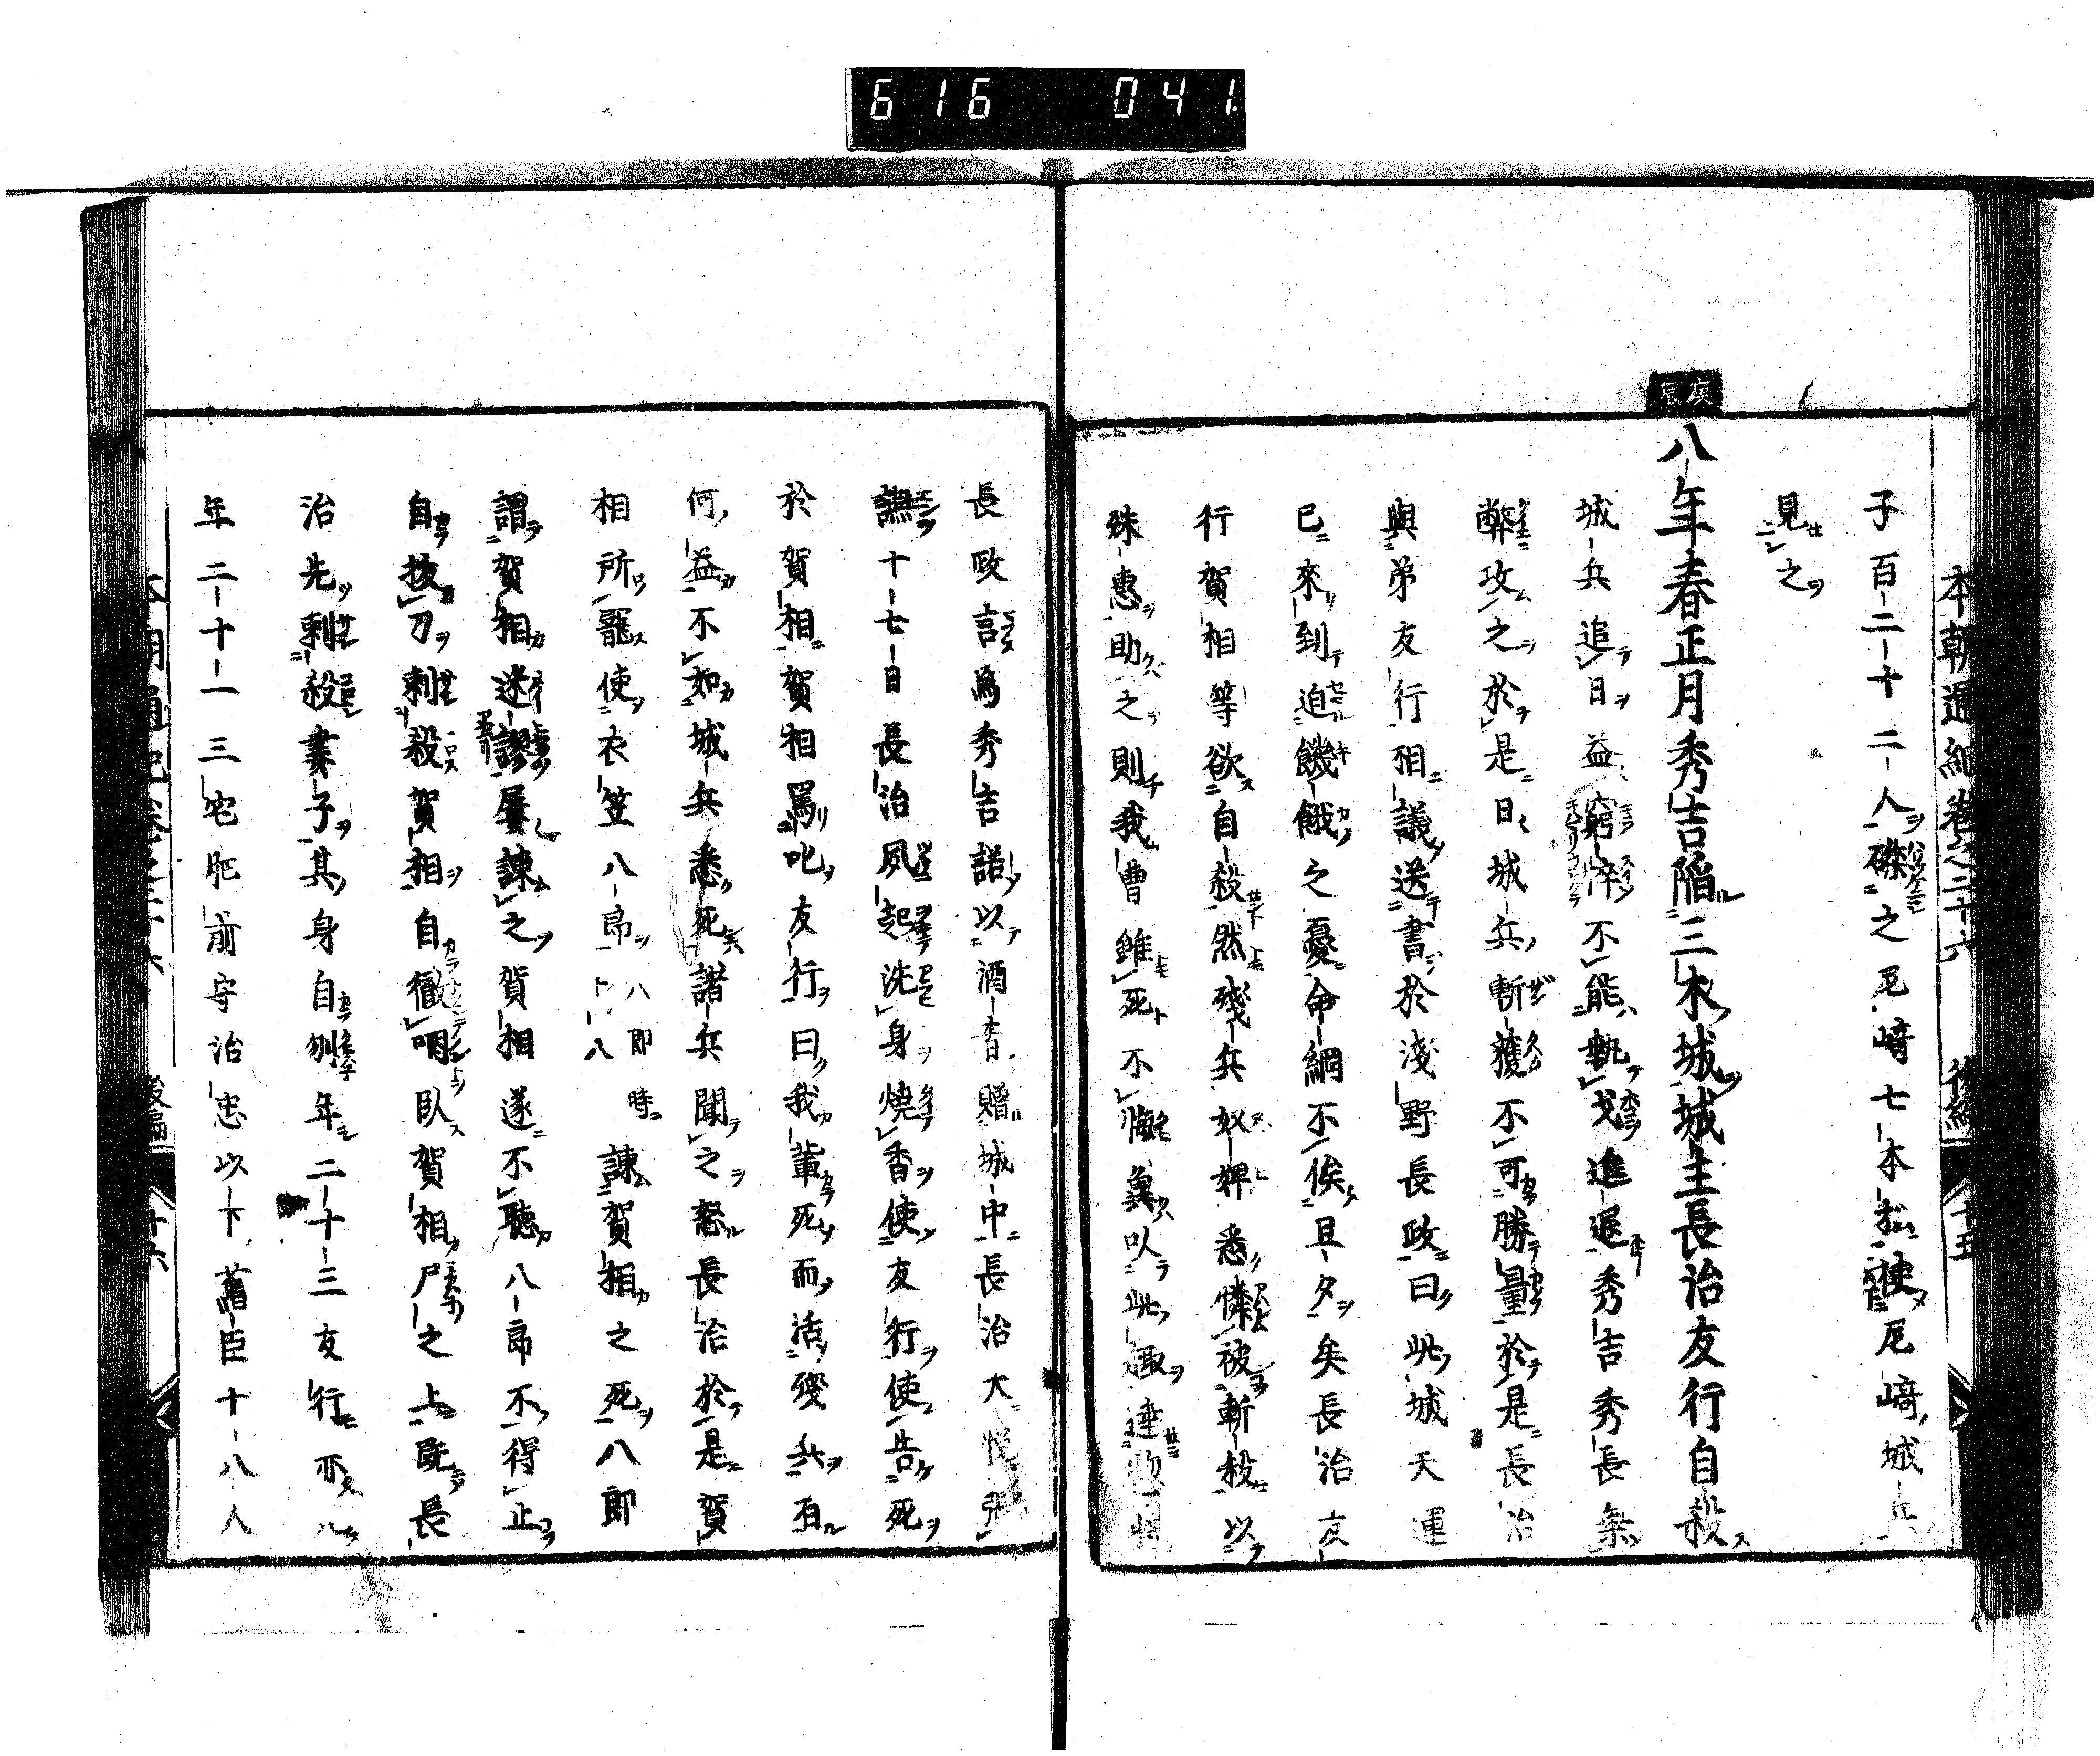 616 041
本朝通紀卷之二十六 後編 十五
子百二十二人磔之尼﨑七本松使尼﨑城兵
見之
庚辰
八年春正月秀吉陷三木城城主長治友行自殺
城兵追日益窮悴不能執戈進退秀吉秀長乘
弊攻之於是日城兵斬獲不可勝量於是長治
與弟友行相議送書於淺野長政曰此城天運
已來到迫饑餓之憂命網不俟旦夕矣長治友
行賀相等欲自殺然殘兵奴婢悉憐被斬殺以
殊惠助之則我曹雖死不悔冀以此趣達
長政言爲秀吉諾以酒肴贈城中長治大悅張
讌十七日長治夙起洗身燒香使友行使告死
於賀相賀相罵叱友行曰我輩死而活殘兵有
何益不如城兵悉死諸兵聞之怒長治於是賀
相所寵使衣笠八郎八郎時十八諫賀相之死八郎
謂賀相迷謬屢諫之賀相遂不聽八郎不得止
自拔刀刺殺賀相自徹咽臥賀相尸之上既長
治先刺殺妻子其身自刎年二十三友行亦
年二十一三宅肥前守治忠以下舊臣十八人
本朝通紀卷之二十六 後編 十六